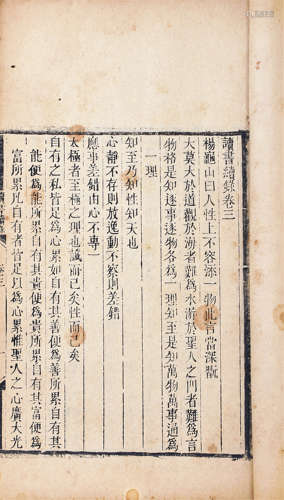 讀書續錄卷三
楊龜山曰人性上不容添一物此言當深翫
大莫大於道觀於海者難為水游於聖人之門者難為言
物格是知逐事逐物各為一理知至是知萬物萬事通為
一理
知至乃知性知天也
心靜不存則放逸動不察則差錯
應事差錯由心不專一
太極者至極之理也誠而已矣性而已矣
自有之私皆足為心累如自有其善便為善所累自有其
能便為能所累自有其貴便為貴所累自有其富便為
富所累凡自有者皆足以為心累惟聖人之心廣大光